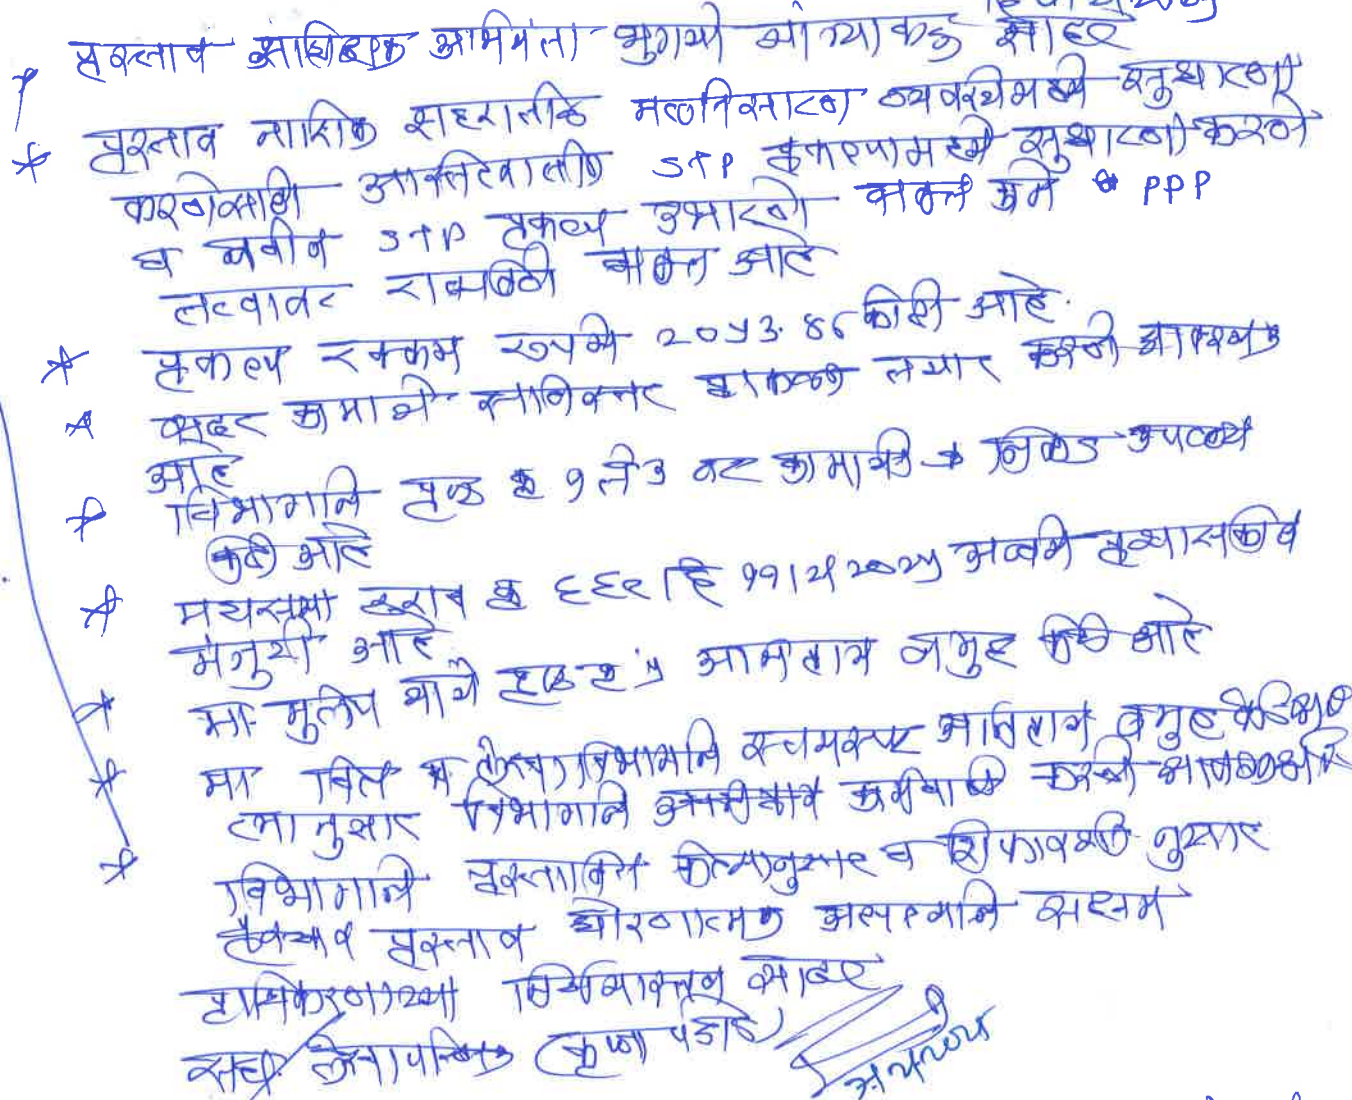 प्रस्ताव अधिक्षक अभियंता यांच्याकडे सादर
* प्रस्ताव नाशिक शहरातील मलनिस्सारण व्यवस्थेमध्ये सुधारणा
करणेसाठी अस्तित्वातील STP प्रकल्पामध्ये सुधारणा करणे
व नवीन STP प्रकल्प उभारणे बाबत PPP
तत्वावर राबविणे बाबत आहे
* प्रकल्प रक्कम रुपये २०५३.४६ कोटी आहे.
* सदर कामाचे सविस्तर प्राकलन तयार करणे आवश्यक
आहे
* विभागाने पृष्ठ क्र १ ते ३ वर कामाची निकड उपलब्ध
केली आहे
* महासभा ठराव क्र ६६९ दि ११ २०२५ अन्वये प्रशासकीय
मंजुरी आहे
* मा. मुलेप यांचे पृष्ठ क्र ५ अभिप्राय नमुद केले आहे
* मा वित्त व लेखा विभागाने स्वयंस्पष्ट अभिप्राय नमुद केले
त्यानुसार विभागाने कार्यवाही करणे
* विभागाने प्रस्तावित केल्यानुसार व शिफारशी नुसार
प्रस्ताव धोरणात्मक असल्याने सक्षम
प्राधिकरणाच्या निर्णयास्तव सादर
सहा. लेखापरिक्षक (कृष्णा